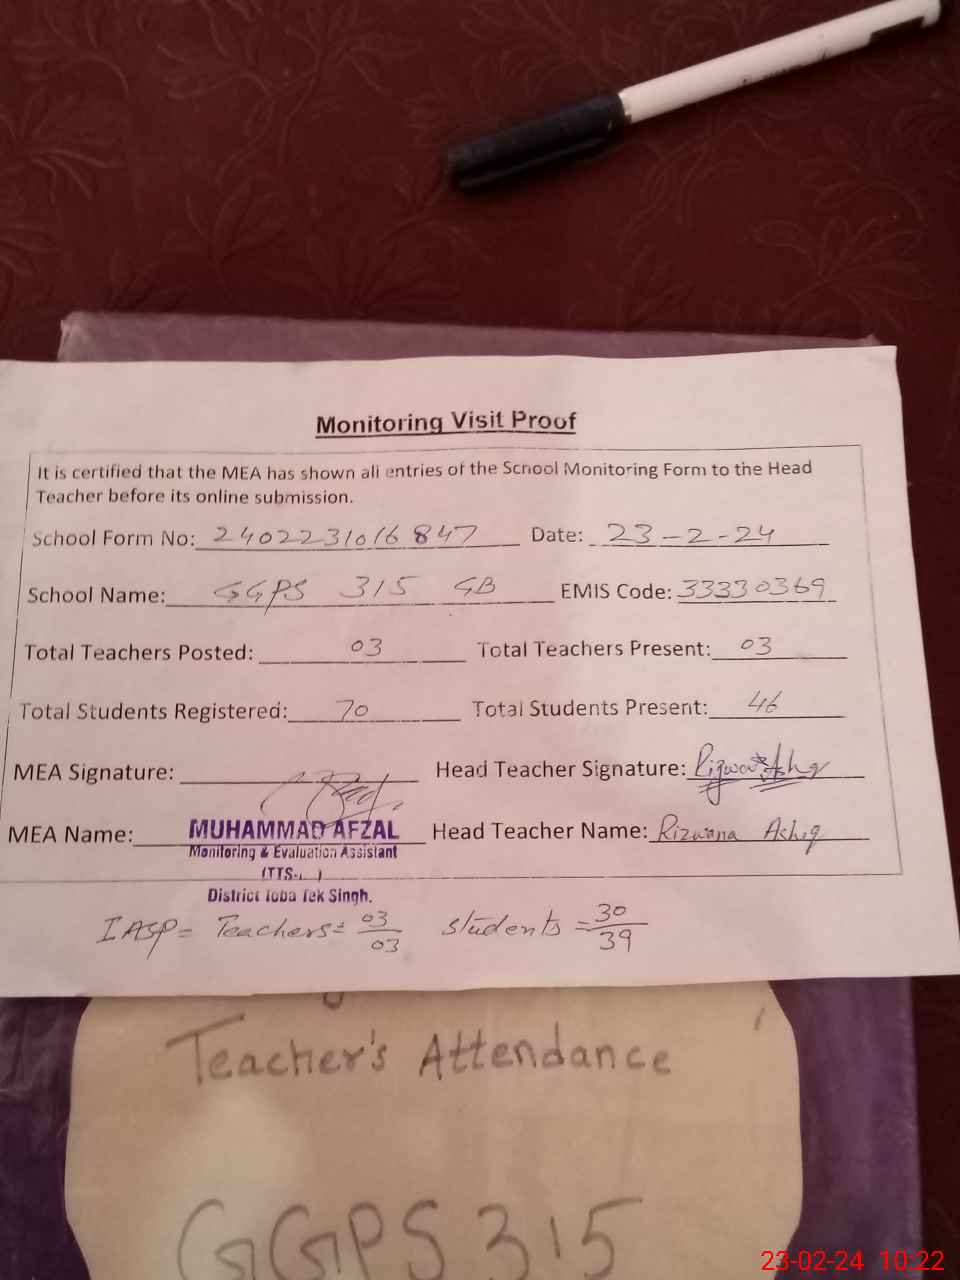 Monitoring Visit Proof
It is certified that the MEA has shown all entries of the School Monitoring Form to the Head
Teacher before its online submission.
School Form No: 2402231016847 Date: 23-2-24
School Name: GGPS 315 GB EMIS Code: 33330369
Total Teachers Posted: 03 Total Teachers Present: 03
Total Students Registered: 70 Total Students Present: 46
MEA Signature: Head Teacher Signature: Rizwana Ashiq
MEA Name: MUHAMMAD AFZAL Head Teacher Name: Rizwana Ashiq
Monitoring & Evaluation Assistant
District Toba Tek Singh.
IASP= Teachers= 03/03 students = 30/39
Teacher's Attendance
GGPS 315
23-02-24 10:22